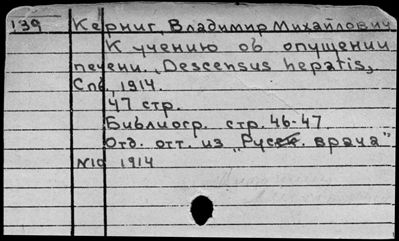 139 Керниг, Владимир Михайлович
К учению об опущении
печени. „Descensus hepatis„
Спб, 1914.
47 стр.
Библиогр. стр. 46-47
Отд. отт. из „Русск. врача"
N10 1914